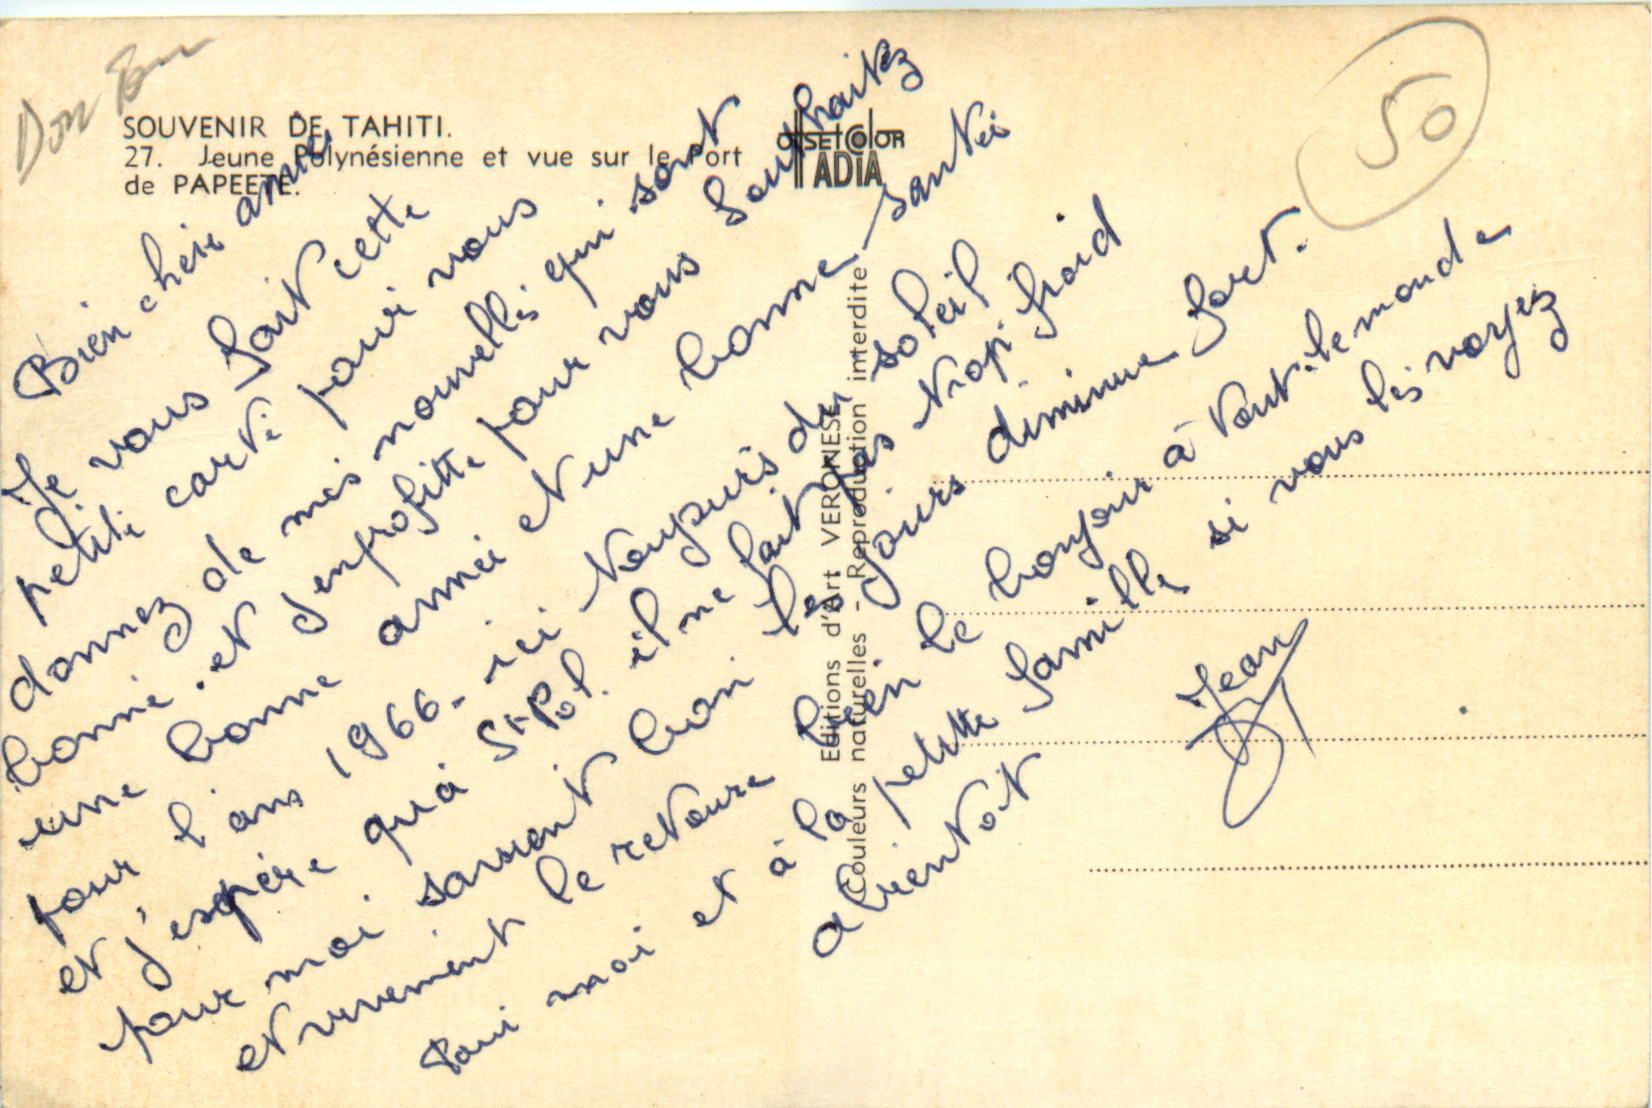 SOUVENIR DE TAHITI.
27. Jeune Polynésienne et vue sur le Port
de PAPEETE.
OFFSET COLOR
IADIA
50
Bien chère amie
Je vous fait cette
petite carte pour vous
donnez de mes nouvelles qui sont
bonne. et j'enprofitte pour vous southaitez
une bonne année et une bonne santée
pour l'ans 1966 - ici toujours du soleil
et j'espère qu'à St Pol. il ne fait pas trop froid
pour moi sarvient bon les jours diminue fort.
et vivement le retoure bien le bonjour à tout le monde
Pour moi et à la petitte famille si vous les voyez
a bientot
Jean
Editions d'Art VERONESE
Couleurs naturelles - Reproduction interdite